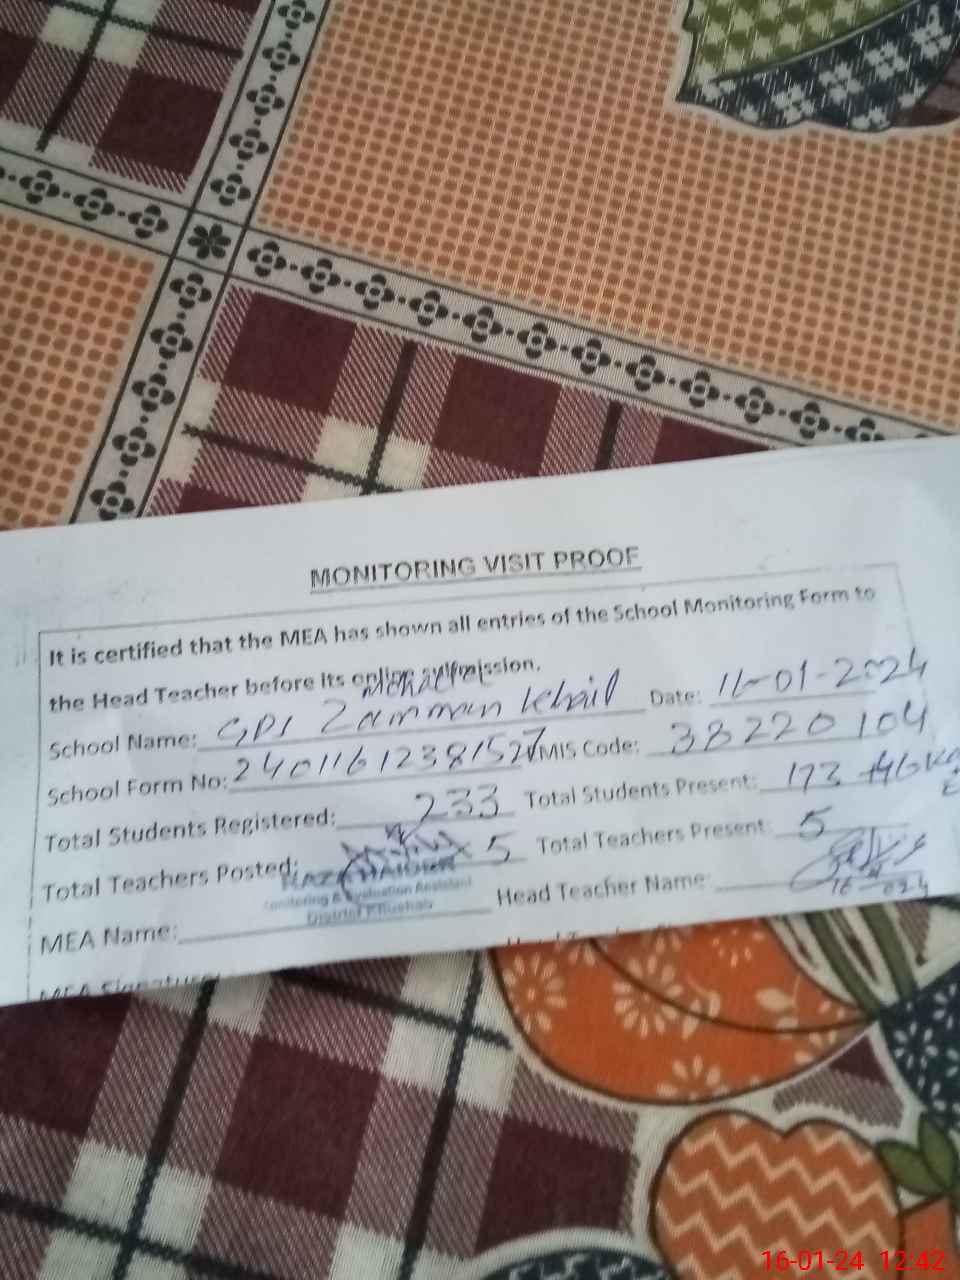 MONITORING VISIT PROOF
It is certified that the MEA has shown all entries of the School Monitoring Form to
the Head Teacher before its online submission.
School Name: GPS Zamman Khail Date: 16-01-2024
School Form No: 2401161238152 EMIS Code: 38220104
Total Students Registered: 233 Total Students Present: 173 +46
Total Teachers Posted: 5 Total Teachers Present: 5
HAIDER
Monitoring & Evaluation Assistant
District Khushab
MEA Name: Head Teacher Name:
MEA Signature:
16-01-24 12:42